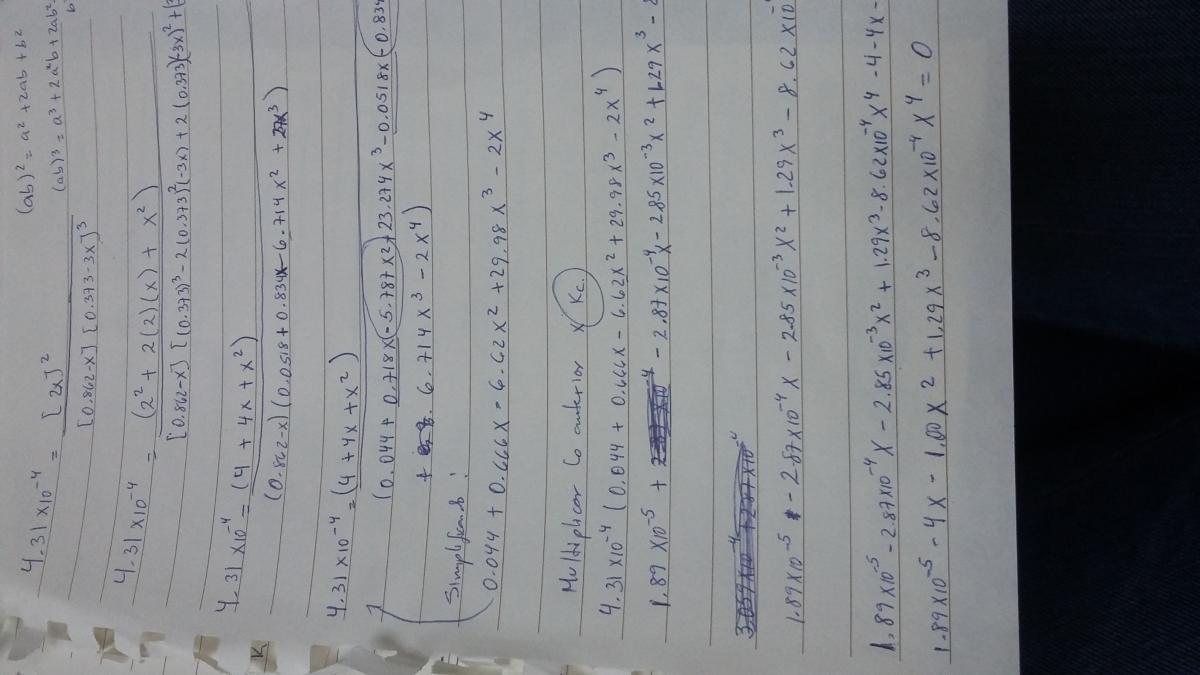 (ab)² = a² + 2ab + b²
(ab)³ = a³ + 2a²b + 2ab²
4.31x10⁻⁴ = [2x]²
[0.862-x] [0.373-3x]³
4.31x10⁻⁴ = (2² + 2(2)(x) + x²)
[0.862-x] [(0.373)³ - 2(0.373)²(-3x) + 2(0.373)(-3x)² +
4.31x10⁻⁴ = (4 + 4x + x²)
(0.862-x)(0.0518 + 0.834x - 6.714x² + 27x³)
4.31x10⁻⁴ = (4 + 4x + x²)
(0.044 + 0.718x - 5.787x² + 23.274x³ - 0.0518x - 0.834
+ 6.714x³ - 2x⁴)
Simplificando:
0.044 + 0.666x - 6.62x² + 29.98x³ - 2x⁴
Multiplicar lo anterior x Kc.
4.31x10⁻⁴ (0.044 + 0.666x - 6.62x² + 29.98x³ - 2x⁴)
1.89x10⁻⁵ + - 2.87x10⁻⁴x - 2.85x10⁻³x² + 1.29x³ - 8
3.059x10⁻⁴ + 2.87x10⁻⁴
1.89x10⁻⁵ - 2.87x10⁻⁴x - 2.85x10⁻³x² + 1.29x³ - 8.62x10⁻
1.89x10⁻⁵ - 2.87x10⁻⁴x - 2.85x10⁻³x² + 1.29x³ - 8.62x10⁻⁴x⁴ - 4 - 4x -
1.89x10⁻⁵ - 4x - 1.00x² + 1.29x³ - 8.62x10⁻⁴x⁴ = 0